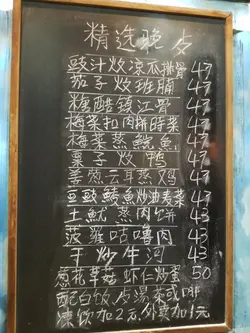 精选晚夕
豉汁炆凉瓜排骨 47
茄子炆班腩 47
糖醋鎮江骨 47
梅菜扣肉拼時菜 47
梅菜蒸鯇魚 47
栗子炆鴨 47
羌葱云耳蒸鸡 47
豆豉鯪魚炒油麦菜 47
土魷蒸肉饼 43
菠蘿咕嚕肉 43
干炒牛河 43
葱花草菇虾仁炒蛋 50
配白饭 湯茶或啡
凍飲加2元 外卖加1元